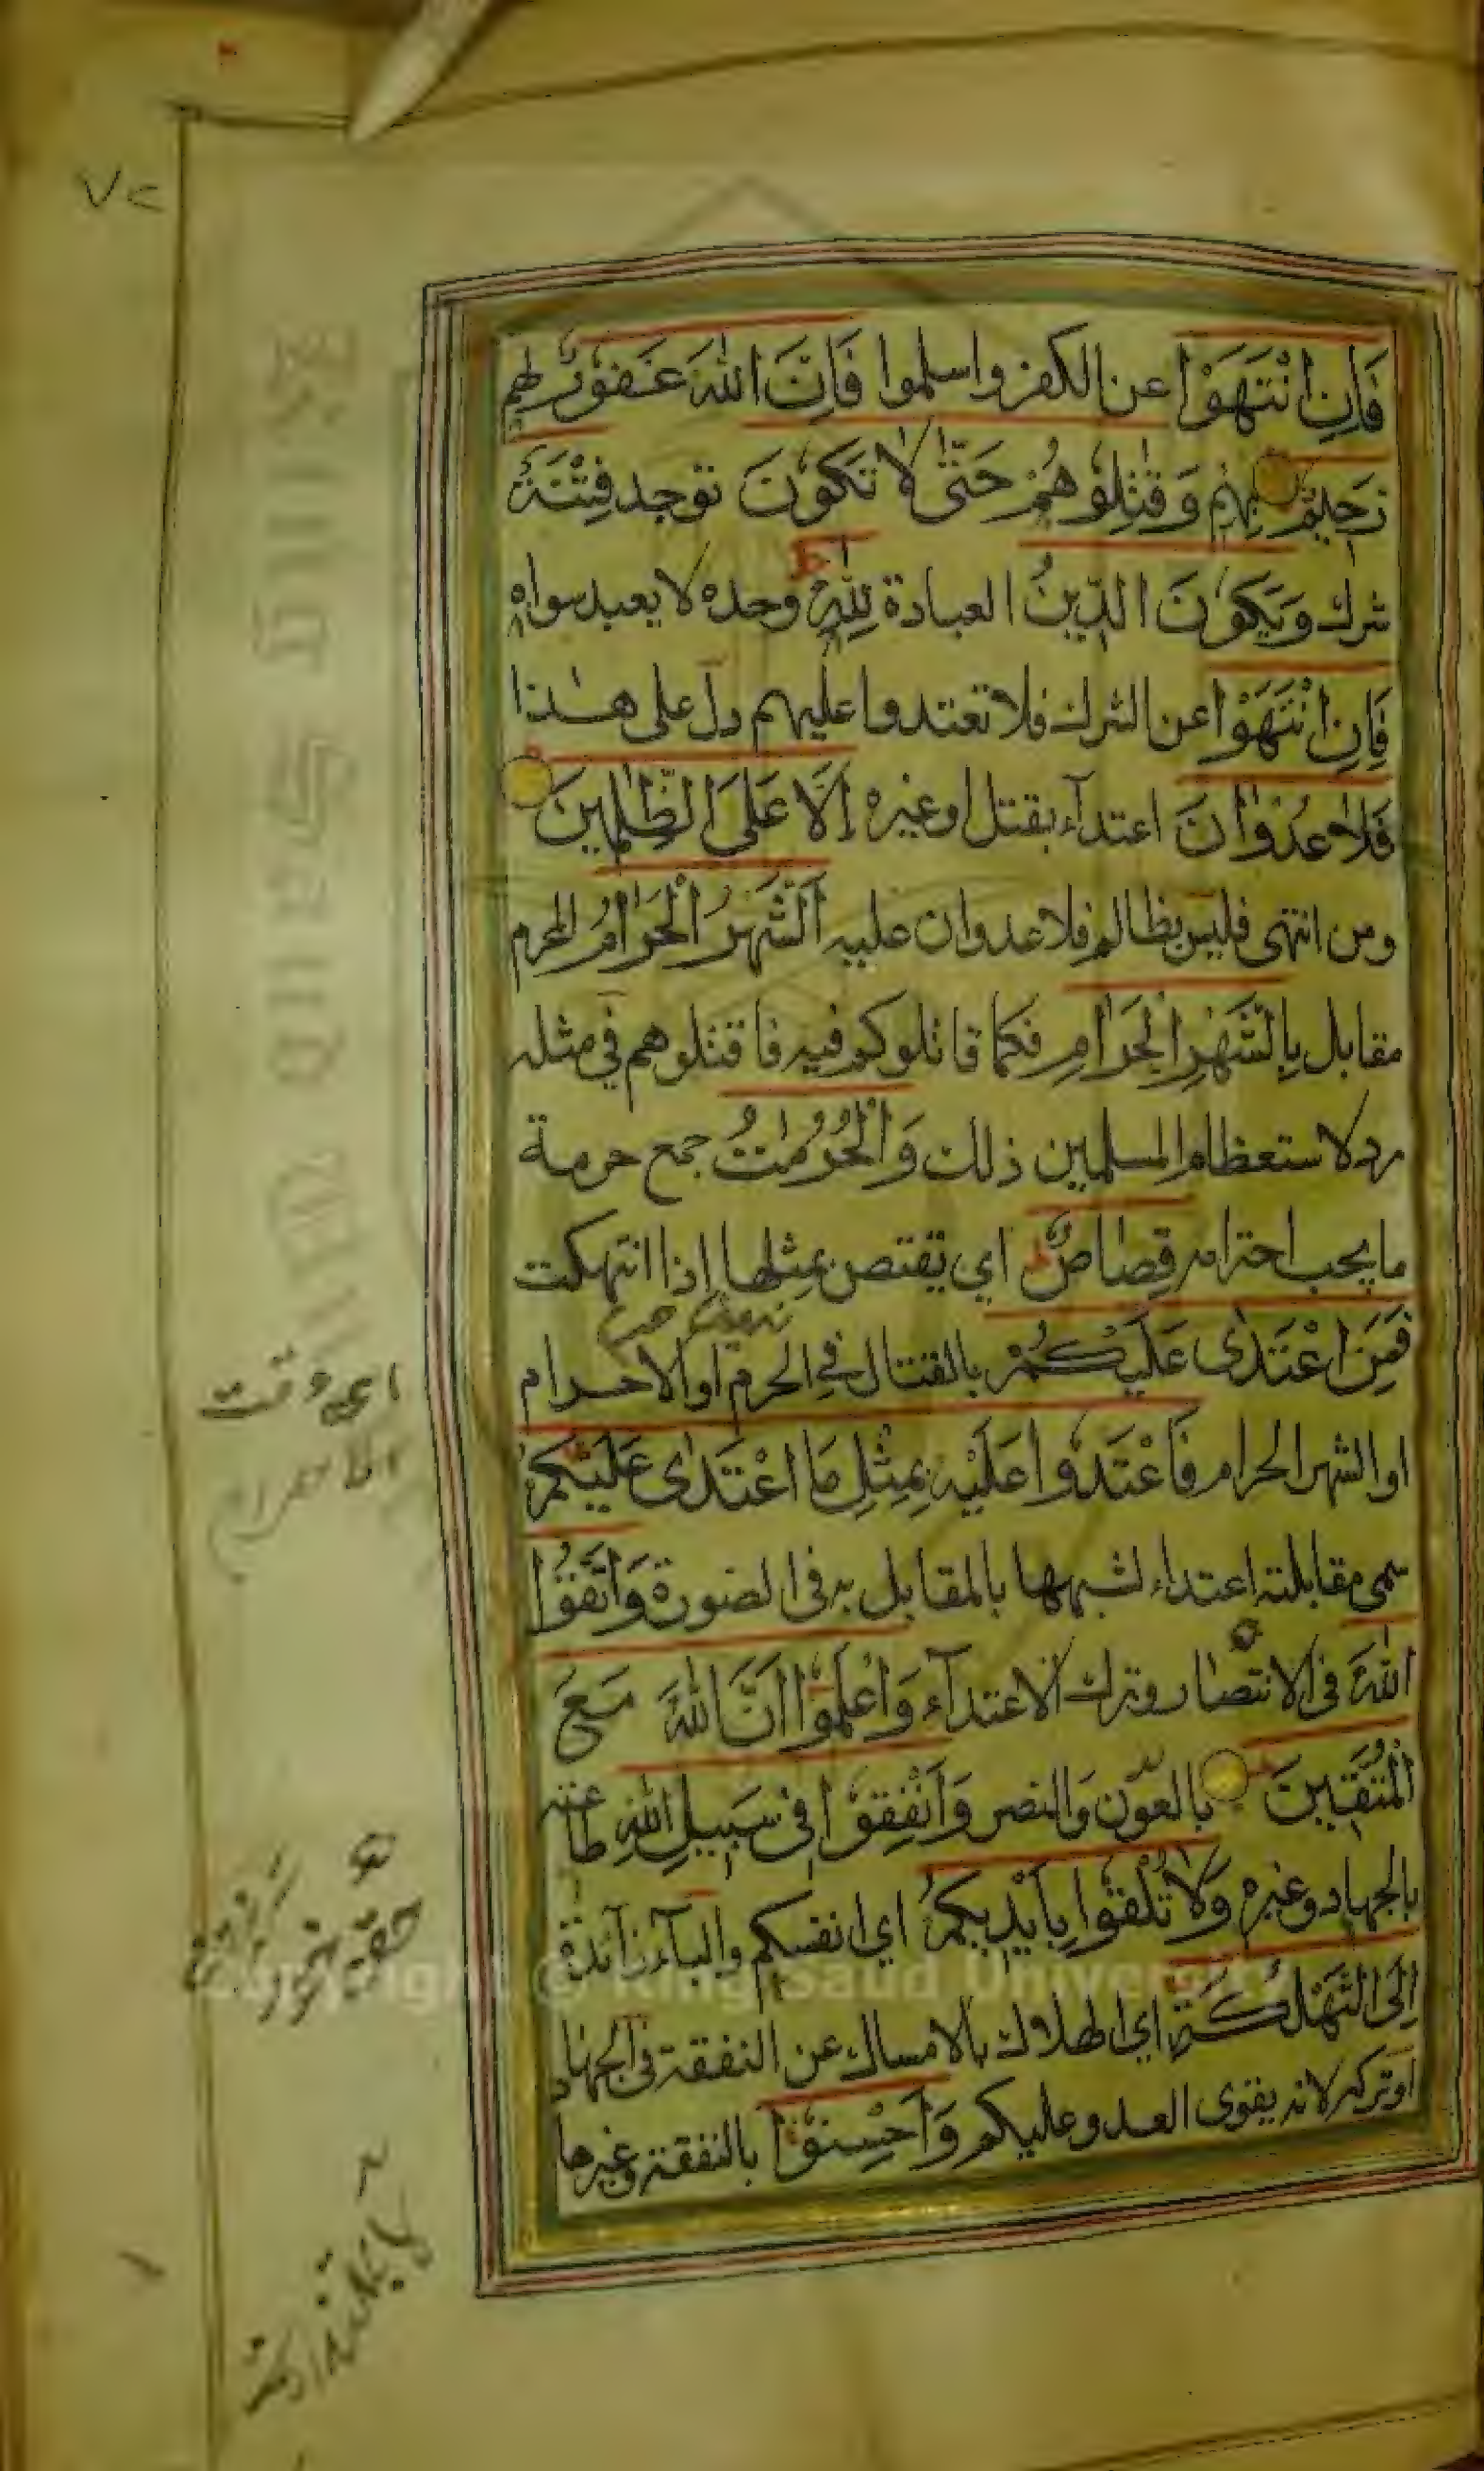 ٧٢
فَاِنِ انْتَهَوْا عن الكفر واسلموا فَاِنَّ اللهَ غَفُوْرٌ لهم
رَحِيْمٌ بهم وَقٰتِلُوْهُمْ حَتّٰى لَا تَكُوْنَ توجد فِتْنَةٌ
شرك وَيَكُوْنَ الدِّيْنُ العبادة لِلّٰهِ وحده لا يعبد سواه
فَاِنِ انْتَهَوْا عن الشرك فلا تعتدوا عليهم دل على هذا
فَلَا عُدْوَانَ اعتداء بقتل او غيره اِلَّا عَلَى الظّٰلِمِيْنَ
ومن انتهى فليس بظالم فلا عدوان عليه اَلشَّهْرُ الْحَرَامُ المحرم
مقابل بِالشَّهْرِ الْحَرَامِ فكما قاتلوكم فيه فاقتلوهم في مثله
رد لاستعظام المسلمين ذلك وَالْحُرُمٰتُ جمع حرمة
ما يجب احترامه قِصَاصٌ اي يقتص بمثلها اذا انتهكت
فَمَنِ اعْتَدٰى عَلَيْكُمْ بالقتال في الحرم او الاحرام
او الشهر الحرام فَاعْتَدُوْا عَلَيْهِ بِمِثْلِ مَا اعْتَدٰى عَلَيْكُمْ
سمى مقابلته اعتداء لشبهها بالمقابل به في الصورة وَاتَّقُوا
اللهَ في الانتصار وترك الاعتداء وَاعْلَمُوْا اَنَّ اللهَ مَعَ
الْمُتَّقِيْنَ بالعون والنصر وَاَنْفِقُوْا فِىْ سَبِيْلِ اللهِ طاعته
بالجهاد وغيره وَلَا تُلْقُوْا بِاَيْدِيْكُمْ اي انفسكم والباء زائدة
اِلَى التَّهْلُكَةِ اي الهلاك بالامساك عن النفقة في الجهاد
او تركه لانه يقوى العدو عليكم وَاَحْسِنُوْا بالنفقة وغيرها
اى وقت
الاحرام
Copyright © King Saud University